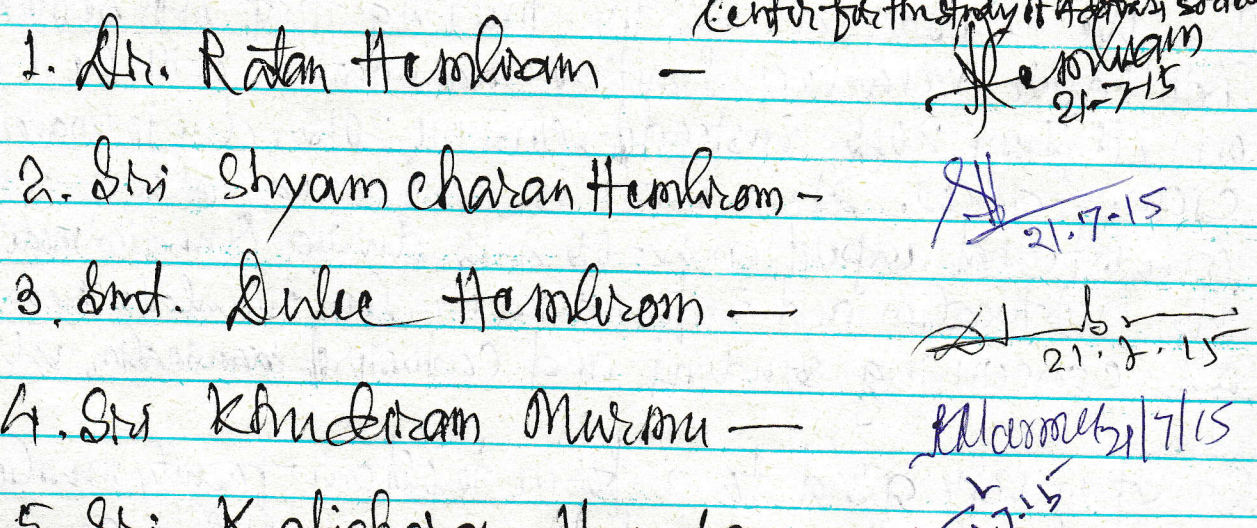 Center for the study of Adivasi Socie
1. Dr. Ratan Hembram — Hembram 21-7-15
2. Sri Shyam Charan Hembrom - 21.7.15
3. Smt. Dulee Hembrom — 21.7.15
4. Sri Khudiram Murmu — KMurmu 21/7/15
5. Sri Kalicharan